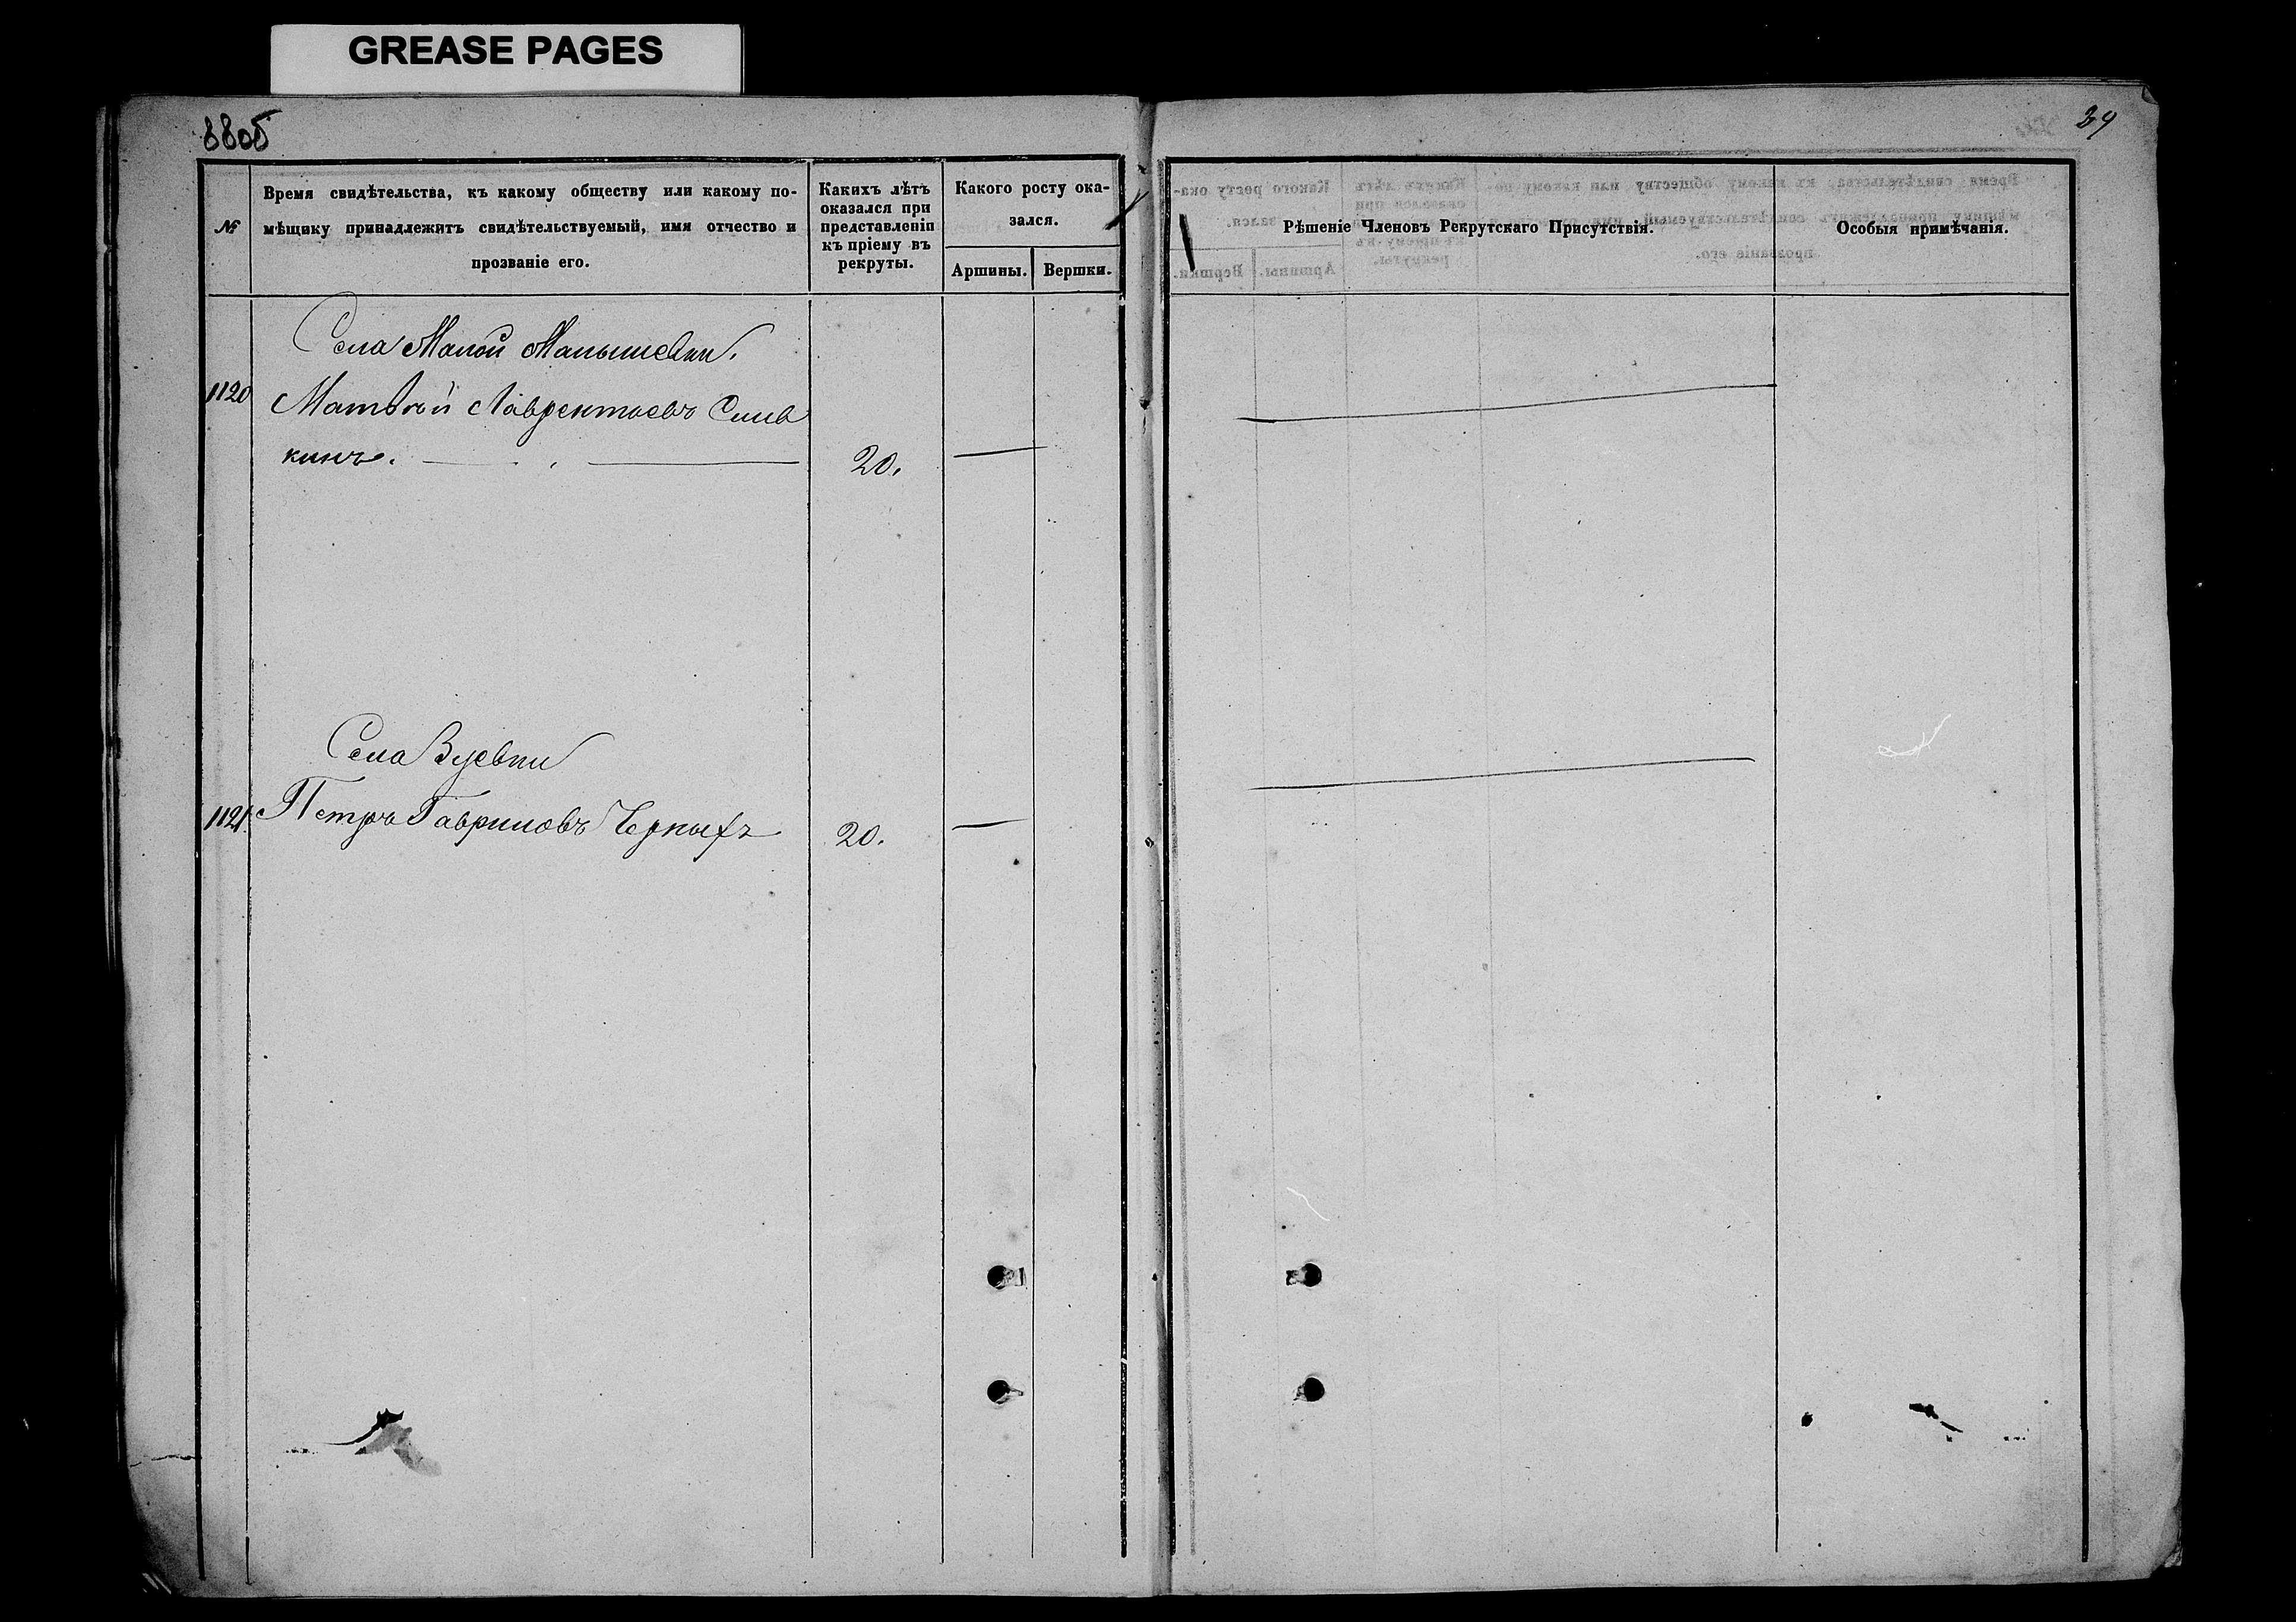 GREASE PAGES
39
№
Время свидѣтельства, къ какому обществу или какому по-
мѣщику принадлежитъ свидѣтельствуемый, имя отчество и
прозваніе его.
Какихъ лѣтъ
оказался при
представленіи
къ пріему въ
рекруты.
Какого росту ока-
зался.
Аршины. Вершки.
Рѣшеніе Членовъ Рекрутскаго Присутствія.
Особыя примѣчанія.
Села Малой Малышевки.
1120 Матвѣй Лаврентьевъ Слив
кинъ. 20.
Села Зуевки
1121. Петръ Гавриловъ Черныхъ 20.